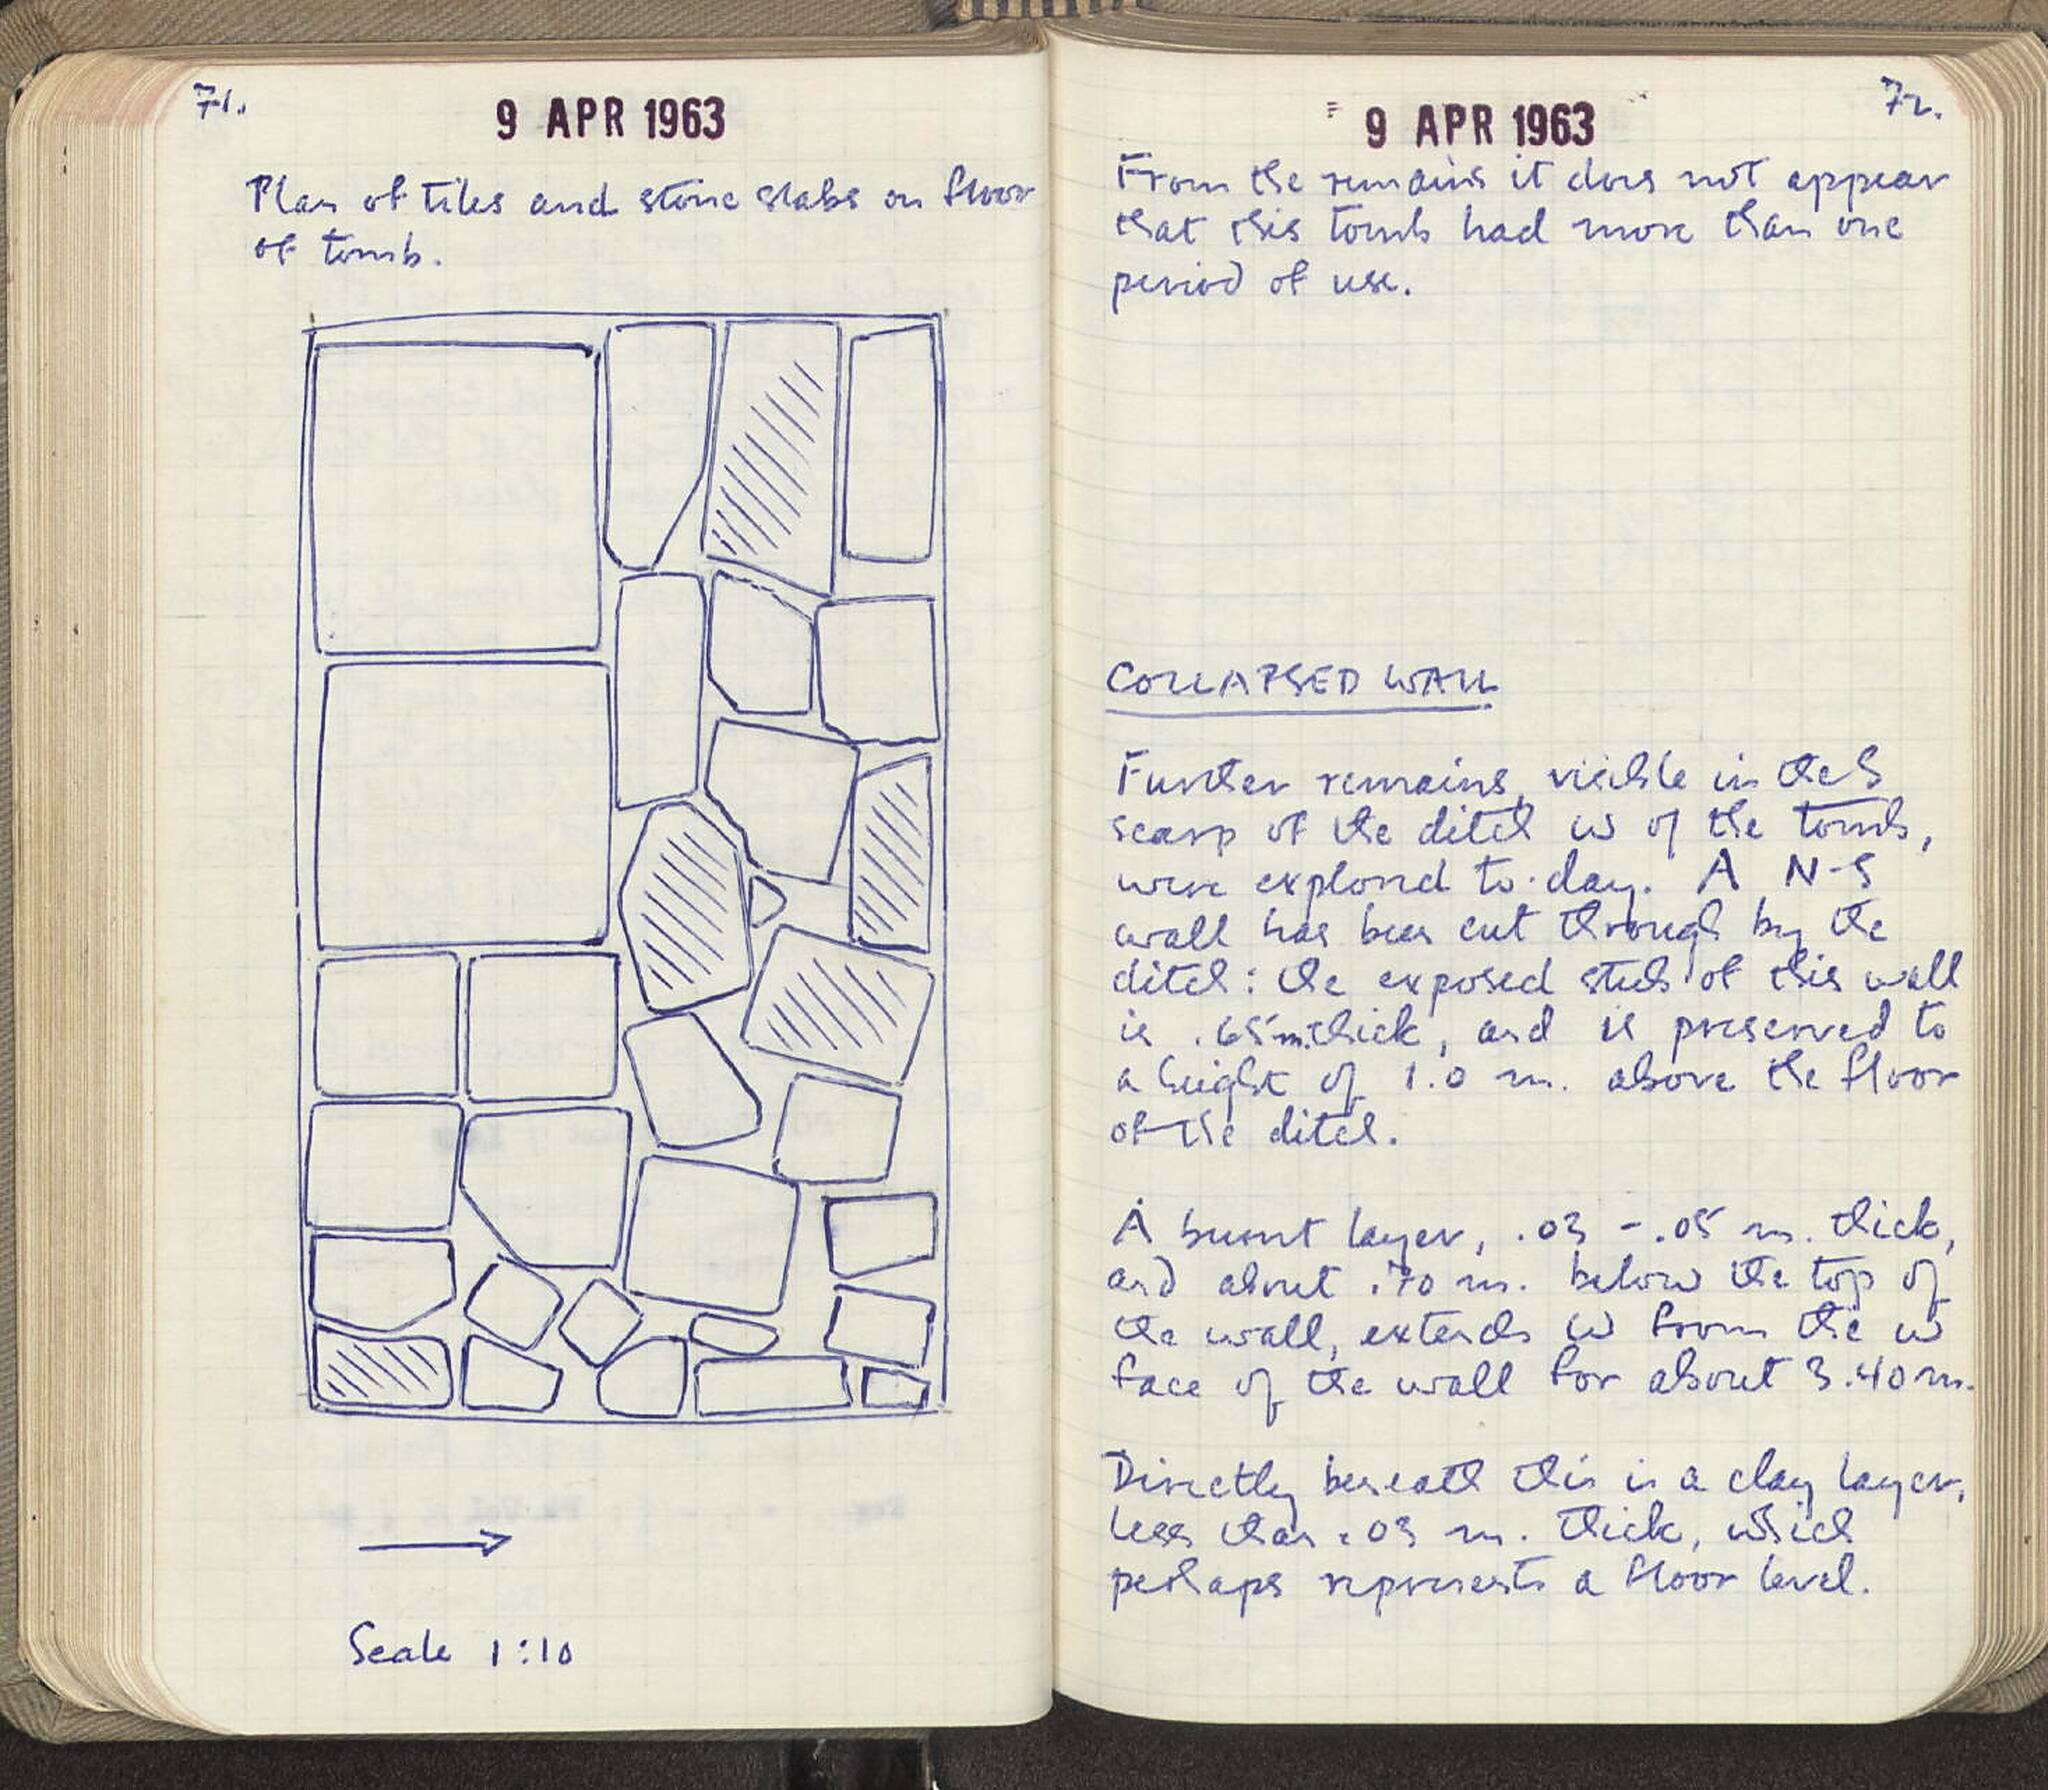 71.
9 APR 1963
Plan of tiles and stone slabs on floor
of tomb.
Scale 1:10
72.
9 APR 1963
From the remains it does not appear
that this tomb had more than one
period of use.
COLLAPSED WALL
Further remains, visible in the S
scarp of the ditch W of the tomb,
were explored to-day. A N-S
wall has been cut through by the
ditch: the exposed stub of this wall
is .65 m. thick, and is preserved to
a height of 1.0 m. above the floor
of the ditch.
A burnt layer, .03 - .05 m. thick,
and about .70 m. below the top of
the wall, extends W from the W
face of the wall for about 3.40 m.
Directly beneath this is a clay layer,
less than .03 m. thick, which
perhaps represents a floor level.